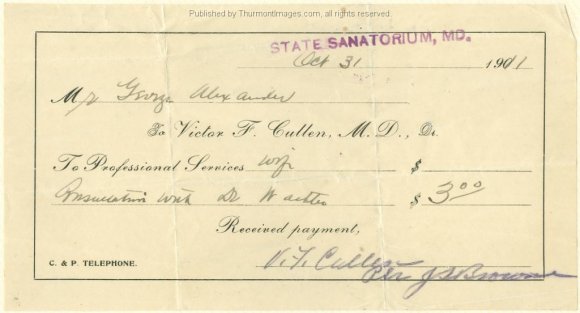 Published by ThurmontImages.com, all rights reserved.
STATE SANATORIUM, MD.
Oct 31 1911
Mr George Alexander
To Victor F. Cullen, M. D., Dr.
To Professional Services wife $
Consultation with Dr $ 3.00
Received payment,
V. F. Cullen
C. & P. TELEPHONE.
Per J S Browne